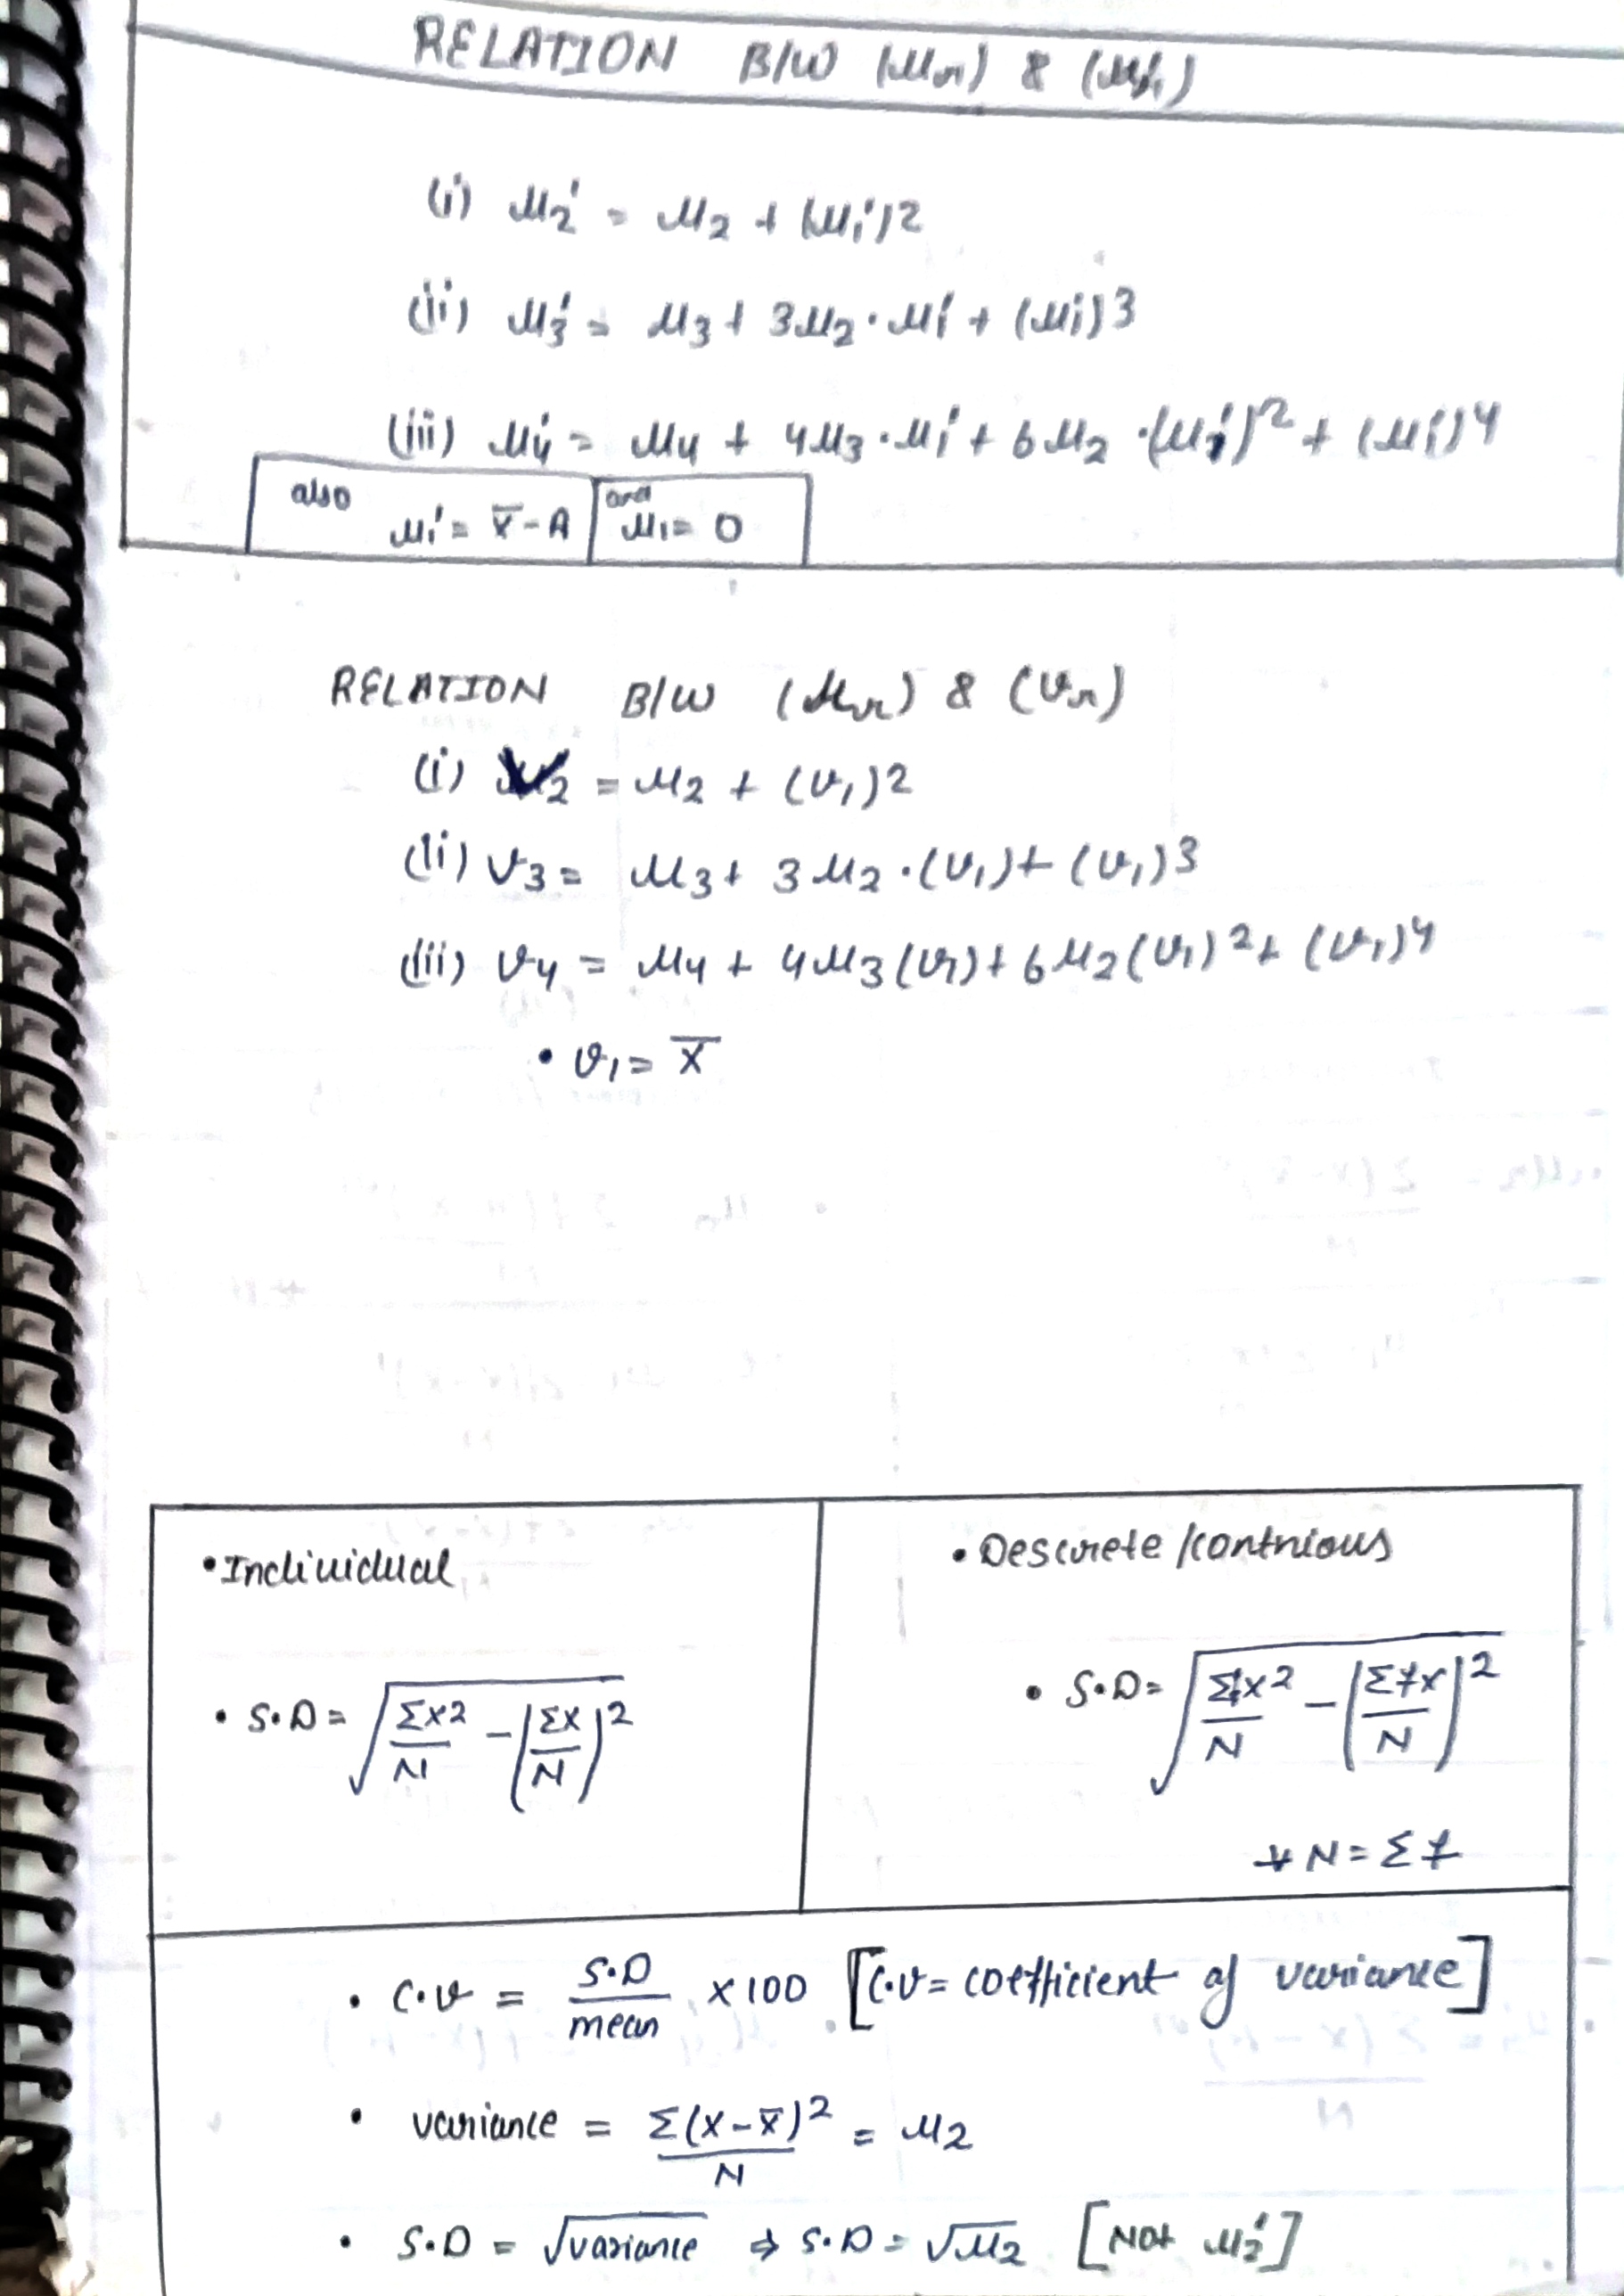 RELATION B/W (μr) & (μ'r)
(i) μ2' = μ2 + (μ1')2
(ii) μ3' = μ3 + 3μ2·μ1' + (μ1')3
(iii) μ4' = μ4 + 4μ3·μ1' + 6μ2·(μ1')2 + (μ1')4
also μ1' = x̅ - A and μ1 = 0
RELATION B/W (μr) & (vr)
(i) V2 = μ2 + (v1)2
(ii) v3 = μ3 + 3μ2·(v1) + (v1)3
(iii) v4 = μ4 + 4μ3(v1) + 6μ2(v1)2 + (v1)4
• v1 = x̅
• Individual
• S.D = √(Σx2/N - (Σx/N)2)
• Descrete/contnious
• S.D = √(Σfx2/N - (Σfx/N)2)
* N = Σf
• C.v = S.D/mean × 100 [C.v = coefficient of variance]
• variance = Σ(x-x̅)2/N = μ2
• S.D = √variance ⇒ S.D = √μ2 [Not μ2']